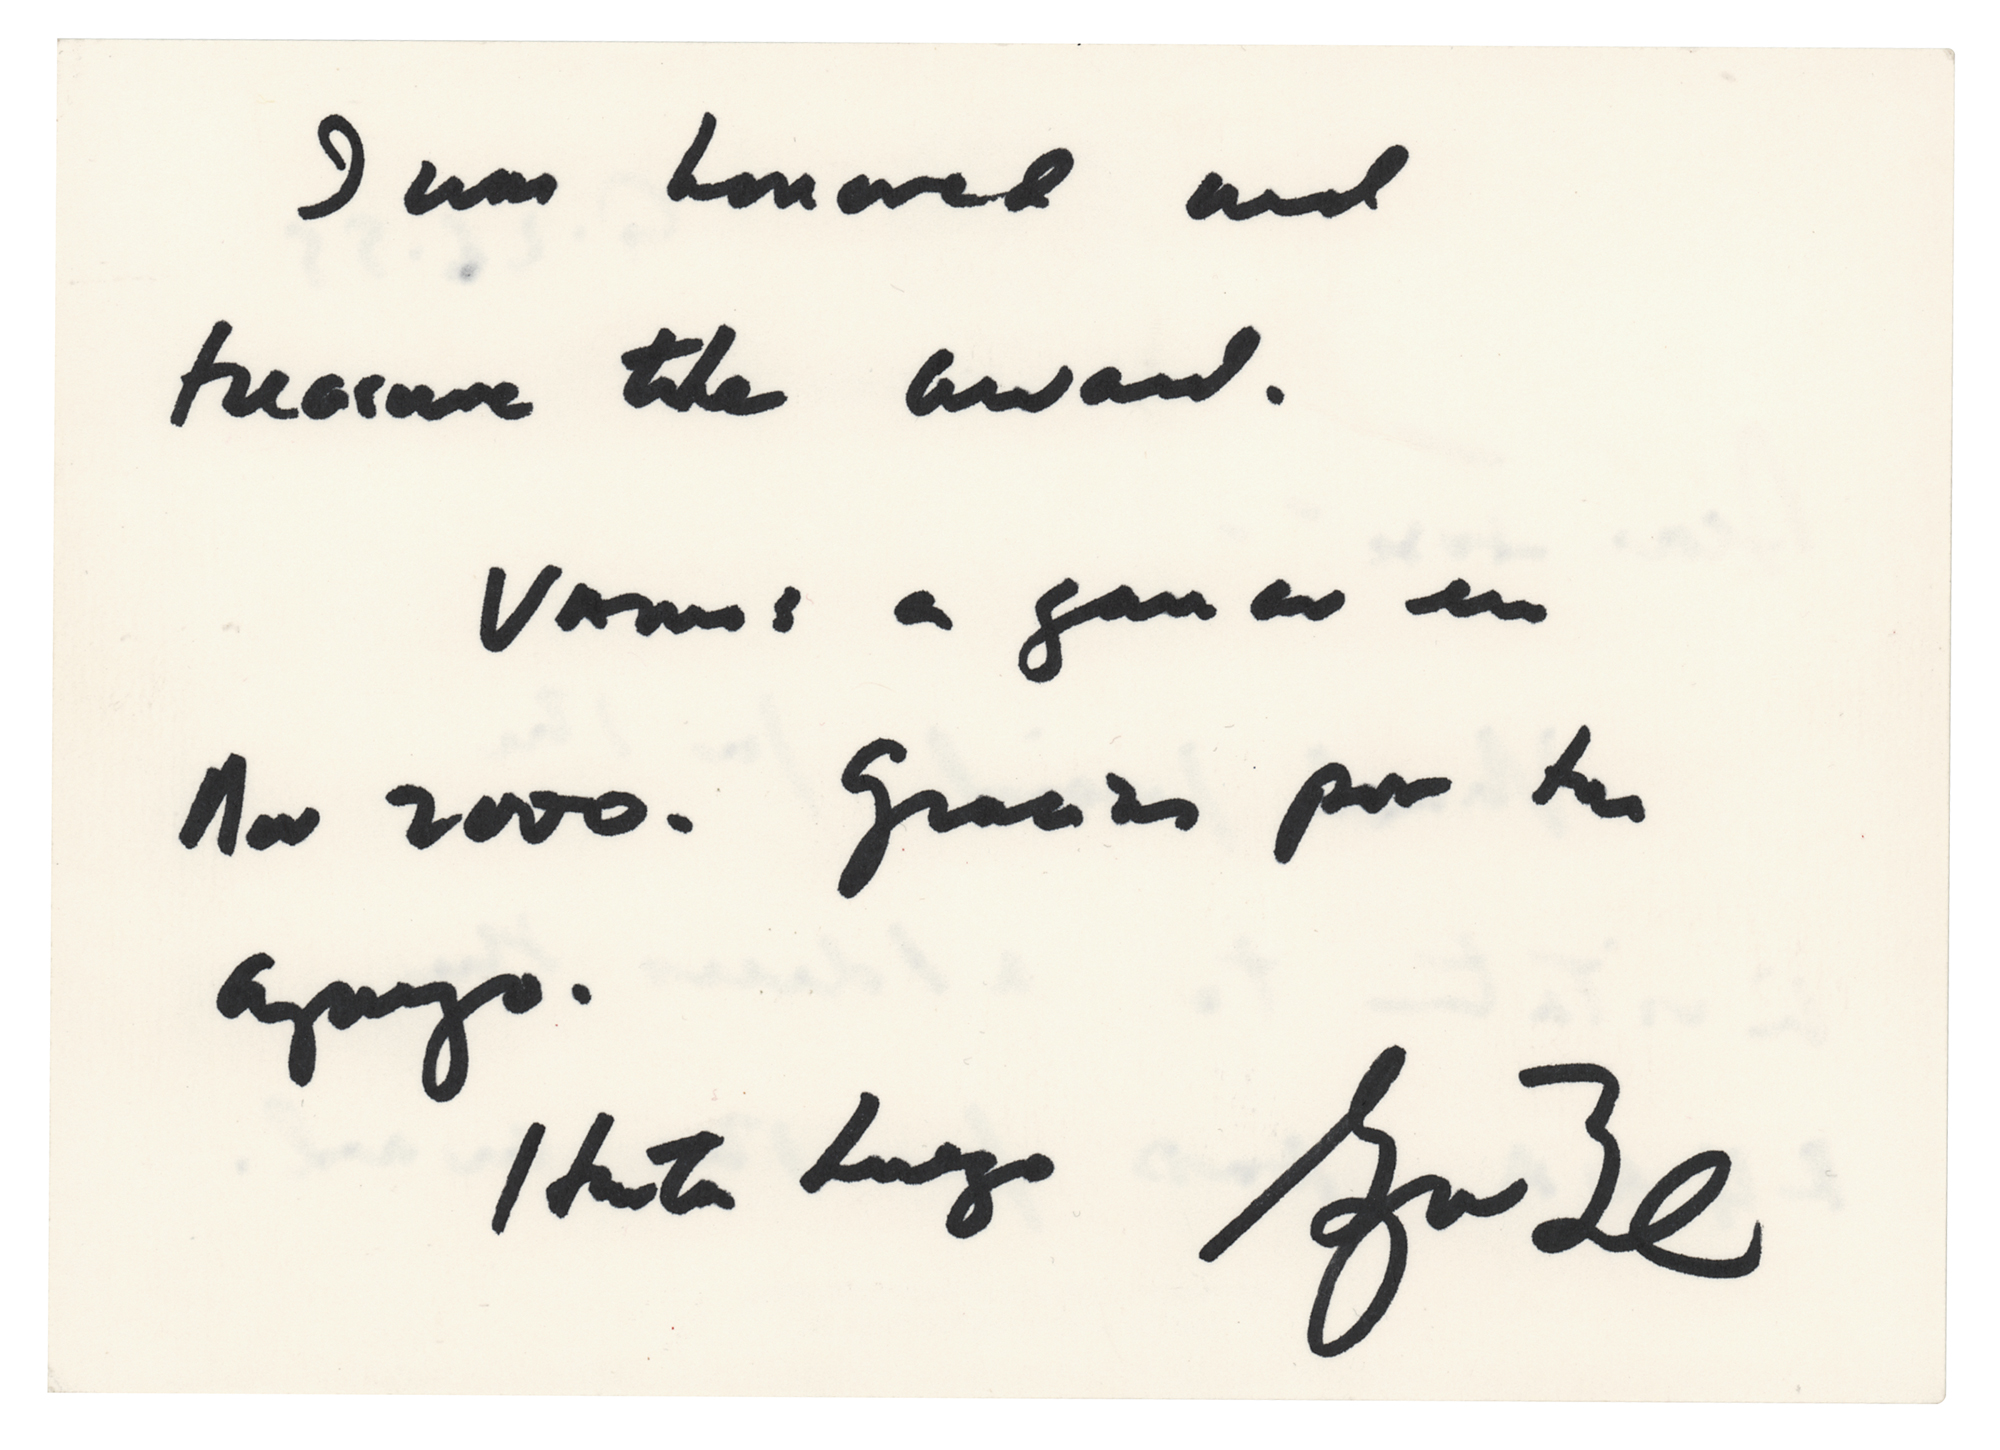 I was honored and
treasure the award.
Vamos a ganar en
Nov 2000. Gracias por tu
apoyo.
Hasta Luego